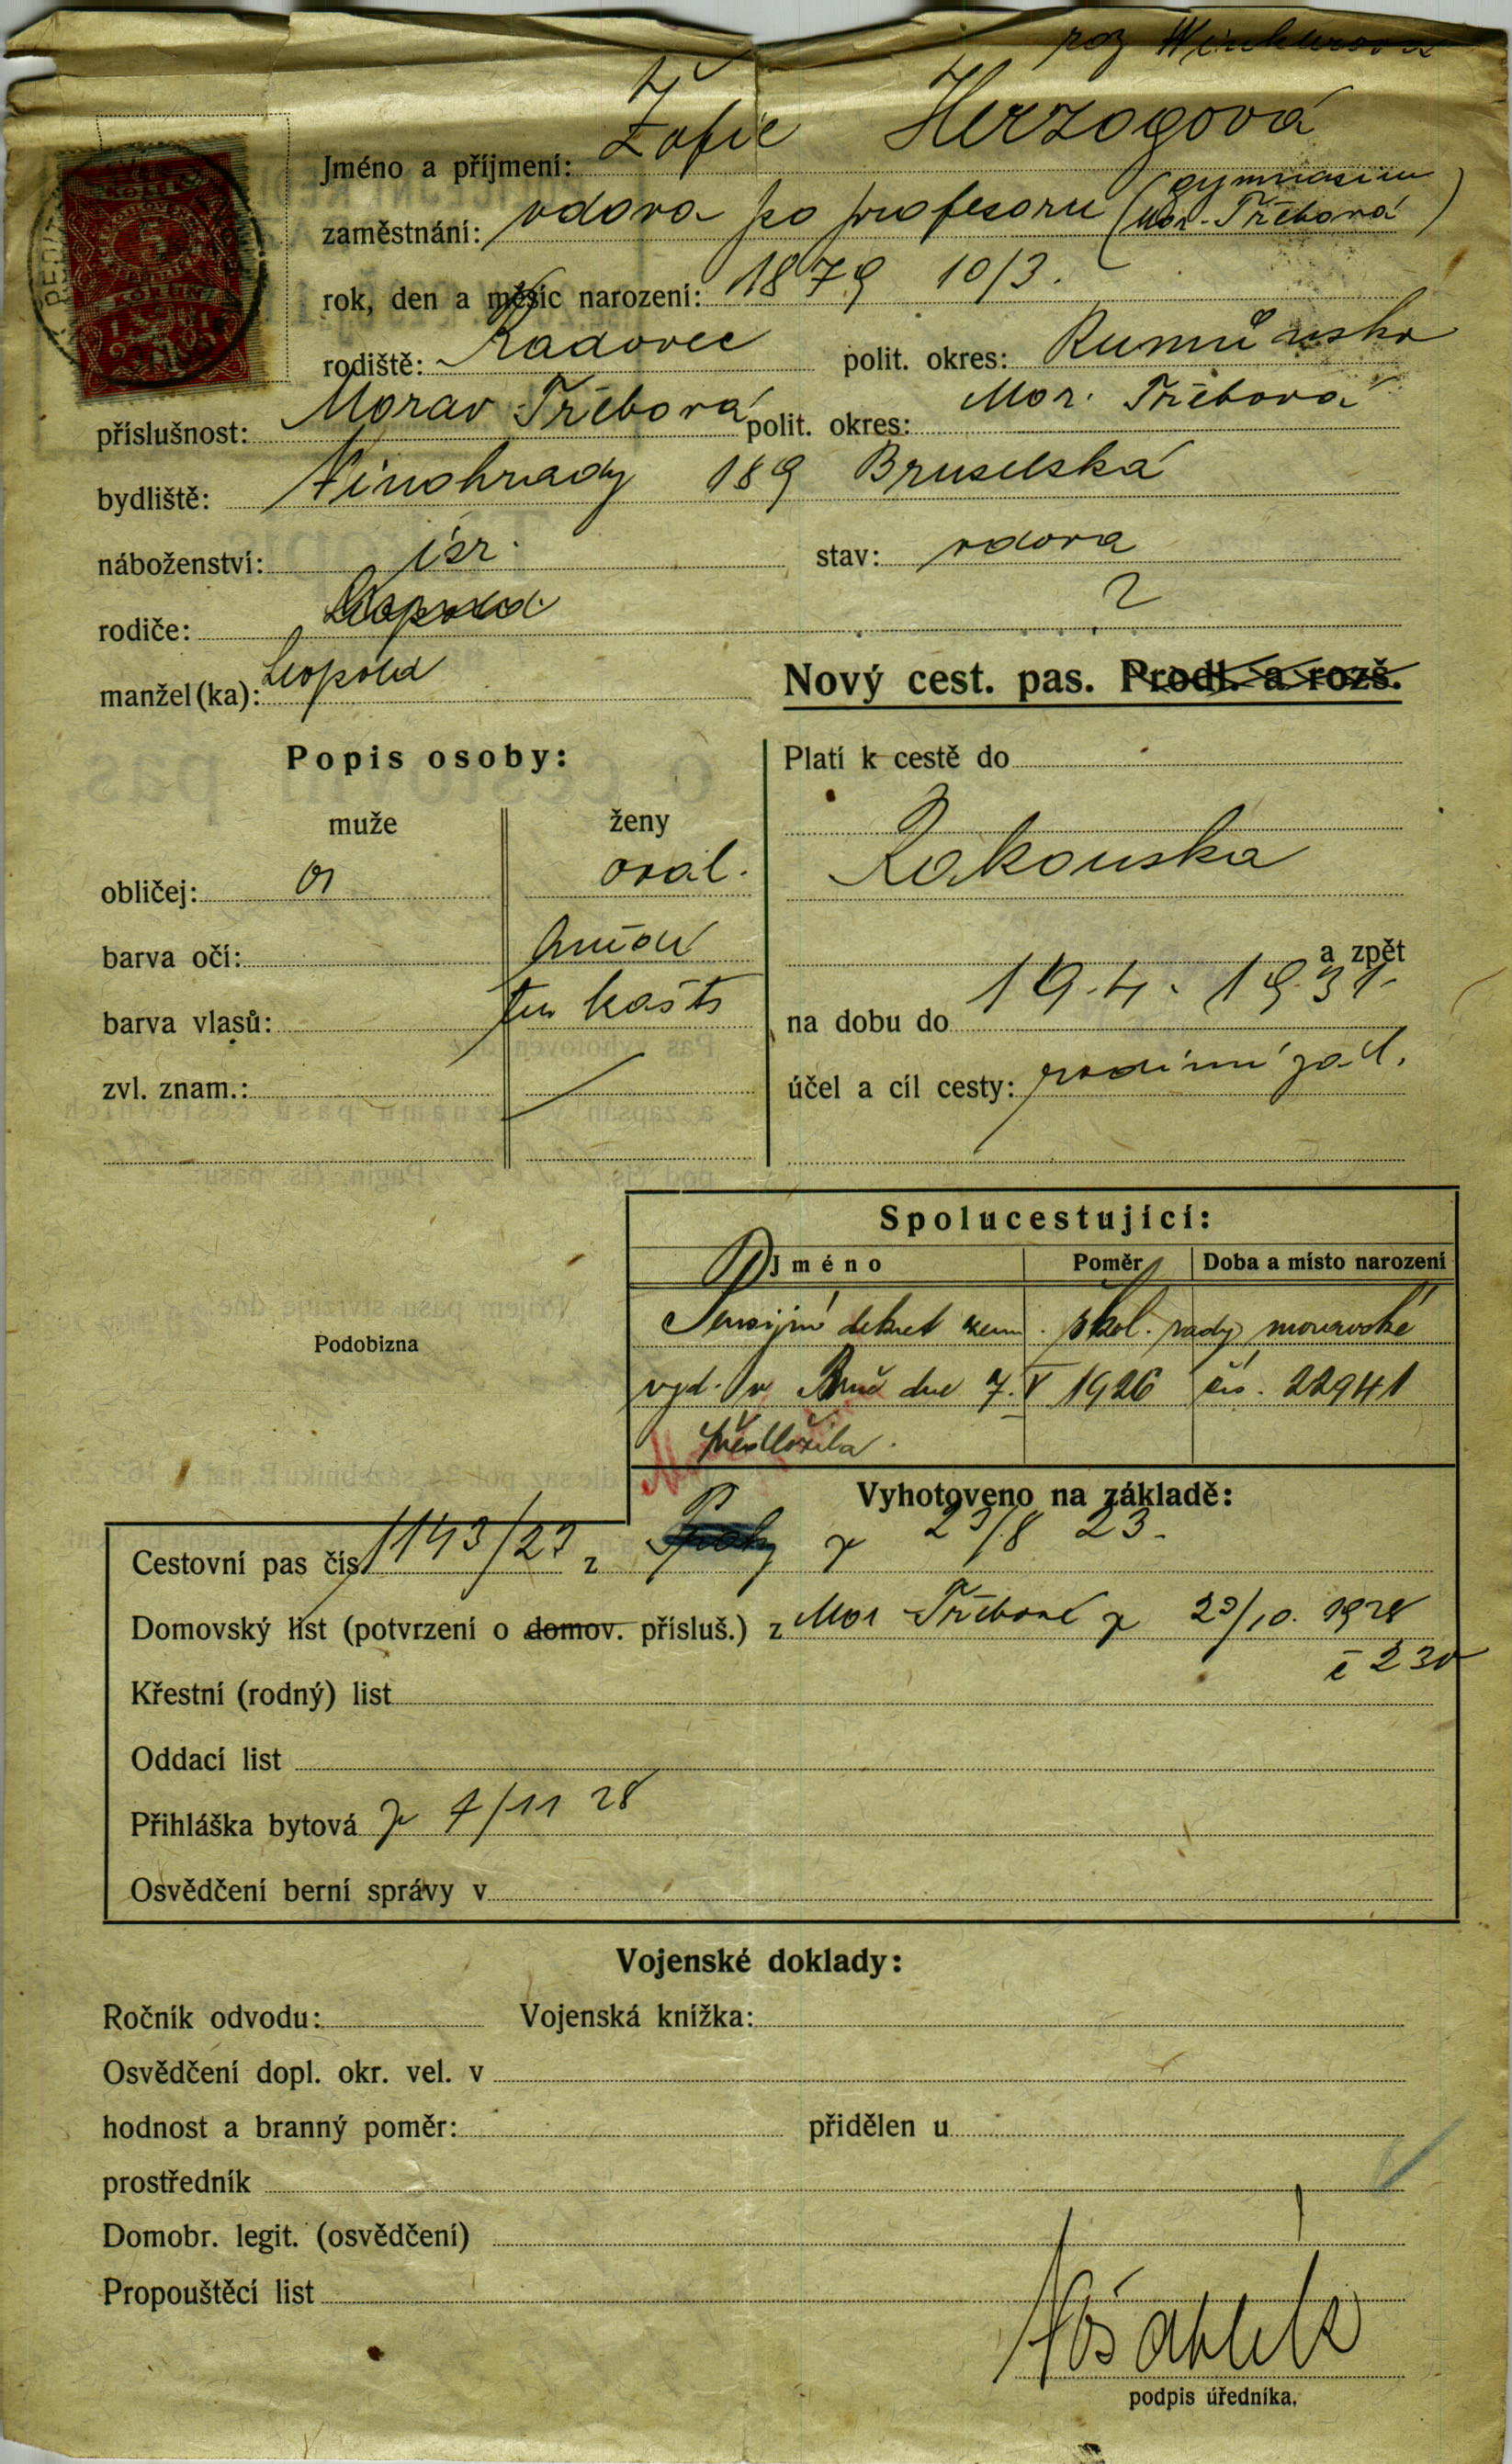 roz
Jméno a příjmení: Žofie Herzogová
zaměstnání: vdova po profesoru (gymnasium Mor. Třebová)
rok, den a měsíc narození: 1879 10/3.
rodiště: Radovec polit. okres: Rumunsko
příslušnost: Morav Třebová polit. okres: Mor. Třebová
bydliště: Vinohrady 189 Bruselská
náboženství: isr. stav: vdova
rodiče: Leopold ?
manžel(ka): Leopold
Nový cest. pas. Prodl. a rozš.
Popis osoby:
muže ženy
obličej: oval.
barva očí: hnědé
barva vlasů: tm kašt
zvl. znam.:
Platí k cestě do
Rakouska
a zpět
na dobu do 19.4. 1931.
účel a cíl cesty: rodinné zál.
Spolucestující:
Jméno Poměr Doba a místo narození
Pensijní dekret zem. škol. rady moravské
vyd. v Brně dne 7.V 1926 čís. 22941
předložila.
Podobizna
Vyhotoveno na základě:
Cestovní pas čís. 1143/23 z Prahy z 23/8 23.
Domovský list (potvrzení o domov. přísluš.) z Mor Třebové z 29/10. 1928
č 230
Křestní (rodný) list
Oddací list
Přihláška bytová z 7/11 28
Osvědčení berní správy v
Vojenské doklady:
Ročník odvodu: Vojenská knížka:
Osvědčení dopl. okr. vel. v
hodnost a branný poměr: přidělen u
prostředník
Domobr. legit. (osvědčení)
Propouštěcí list
podpis úředníka.